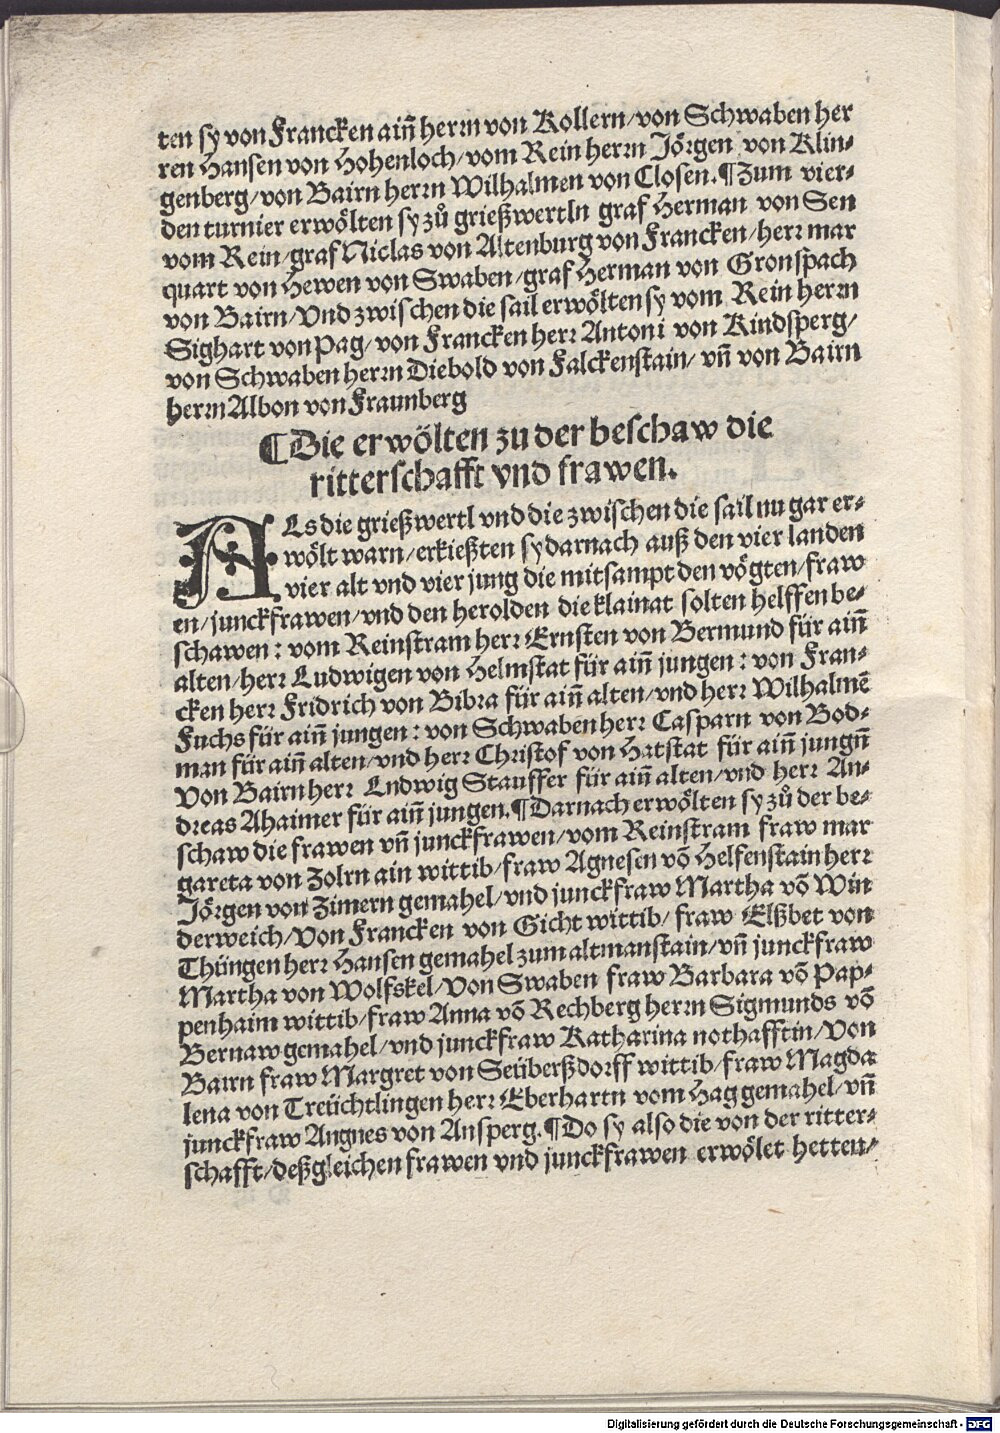 ten sy von Francken ainñ herrn von Kollern/von Schwaben her
ren Hansen von Hohenloch/vom Rein herrn Jörgen von Klin-
genberg/von Bairn herrn Wilhalmen von Closen.¶Zum vier-
den turnier erwölten sy zů grießwertln graf Herman von Sen
vom Rein/graf Niclas von Altenburg von Francken/herr mar
quart von Hewen von Swaben/graf Herman von Gronspach
von Bairn/Vnd zwischen die sail erwölten sy vom Rein herrn
Sighart von Pag/von Francken herr Antoni von Kindsperg/
von Schwaben herrn Diebold von Falckenstain/vñ von Bairn
herrn Albon von Fraunberg
¶Die erwölten zu der beschaw die
ritterschafft vnd frawen.
ALs die grießwertl vnd die zwischen die sail nu gar er-
wölt warn/erkießten sy darnach auß den vier landen
vier alt vnd vier jung die mitsampt den vögten/fraw
en/junckfrawen/vnd den herolden die klainat solten helffen be-
schawen: vom Reinstram herr Ernsten von Bermund für ainñ
alten/herr Ludwigen von Helmstat für ainñ jungen: von Fran-
cken herr Fridrich von Bibra für ainñ alten/vnd herr Wilhalmẽ
Fuchs für ainñ jungen: von Schwaben herr Casparn von Bod-
man für ainñ alten/vnd herr Christof von Hatstat für ainñ jungñ
Von Bairn herr Lndwig Stauffer für ainñ alten/vnd herr An-
dreas Ahaimer für ainñ jungen.¶Darnach erwölten sy zů der be-
schaw die frawen vñ junckfrawen/vom Reinstram fraw mar
gareta von Zolrn ain wittib/fraw Agnesen võ Helfenstain herr
Jörgen von Zimern gemahel/vnd junckfraw Martha võ Win
derweich/Von Francken von Gicht wittib/fraw Elßbet von
Thüngen herr Hansen gemahel zum altmanstain/vñ junckfraw
Martha von Wolfskel/Von Swaben fraw Barbara võ Pap-
penhaim wittib/fraw Anna võ Rechberg herrn Sigmunds võ
Bernaw gemahel/vnd junckfraw Katharina nothafftin/Von
Bairn fraw Margret von Seüberßdorff wittib/fraw Magda
lena von Treüchtlingen herr Eberhartn vom Hag gemahel/vñ
junckfraw Angnes von Ansperg.¶Do sy also die von der ritter-
schafft/deßgleichen frawen vnd junckfrawen erwölet hetten/
Digitalisierung gefördert durch die Deutsche Forschungsgemeinschaft - DFG